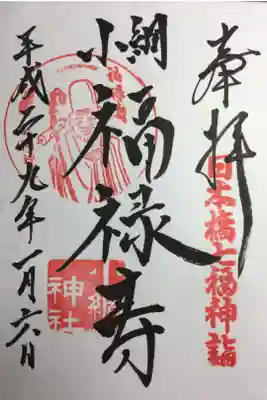 奉拝
日本橋七福神詣
小網
福禄寿
小網神社
平成二十九年一月六日